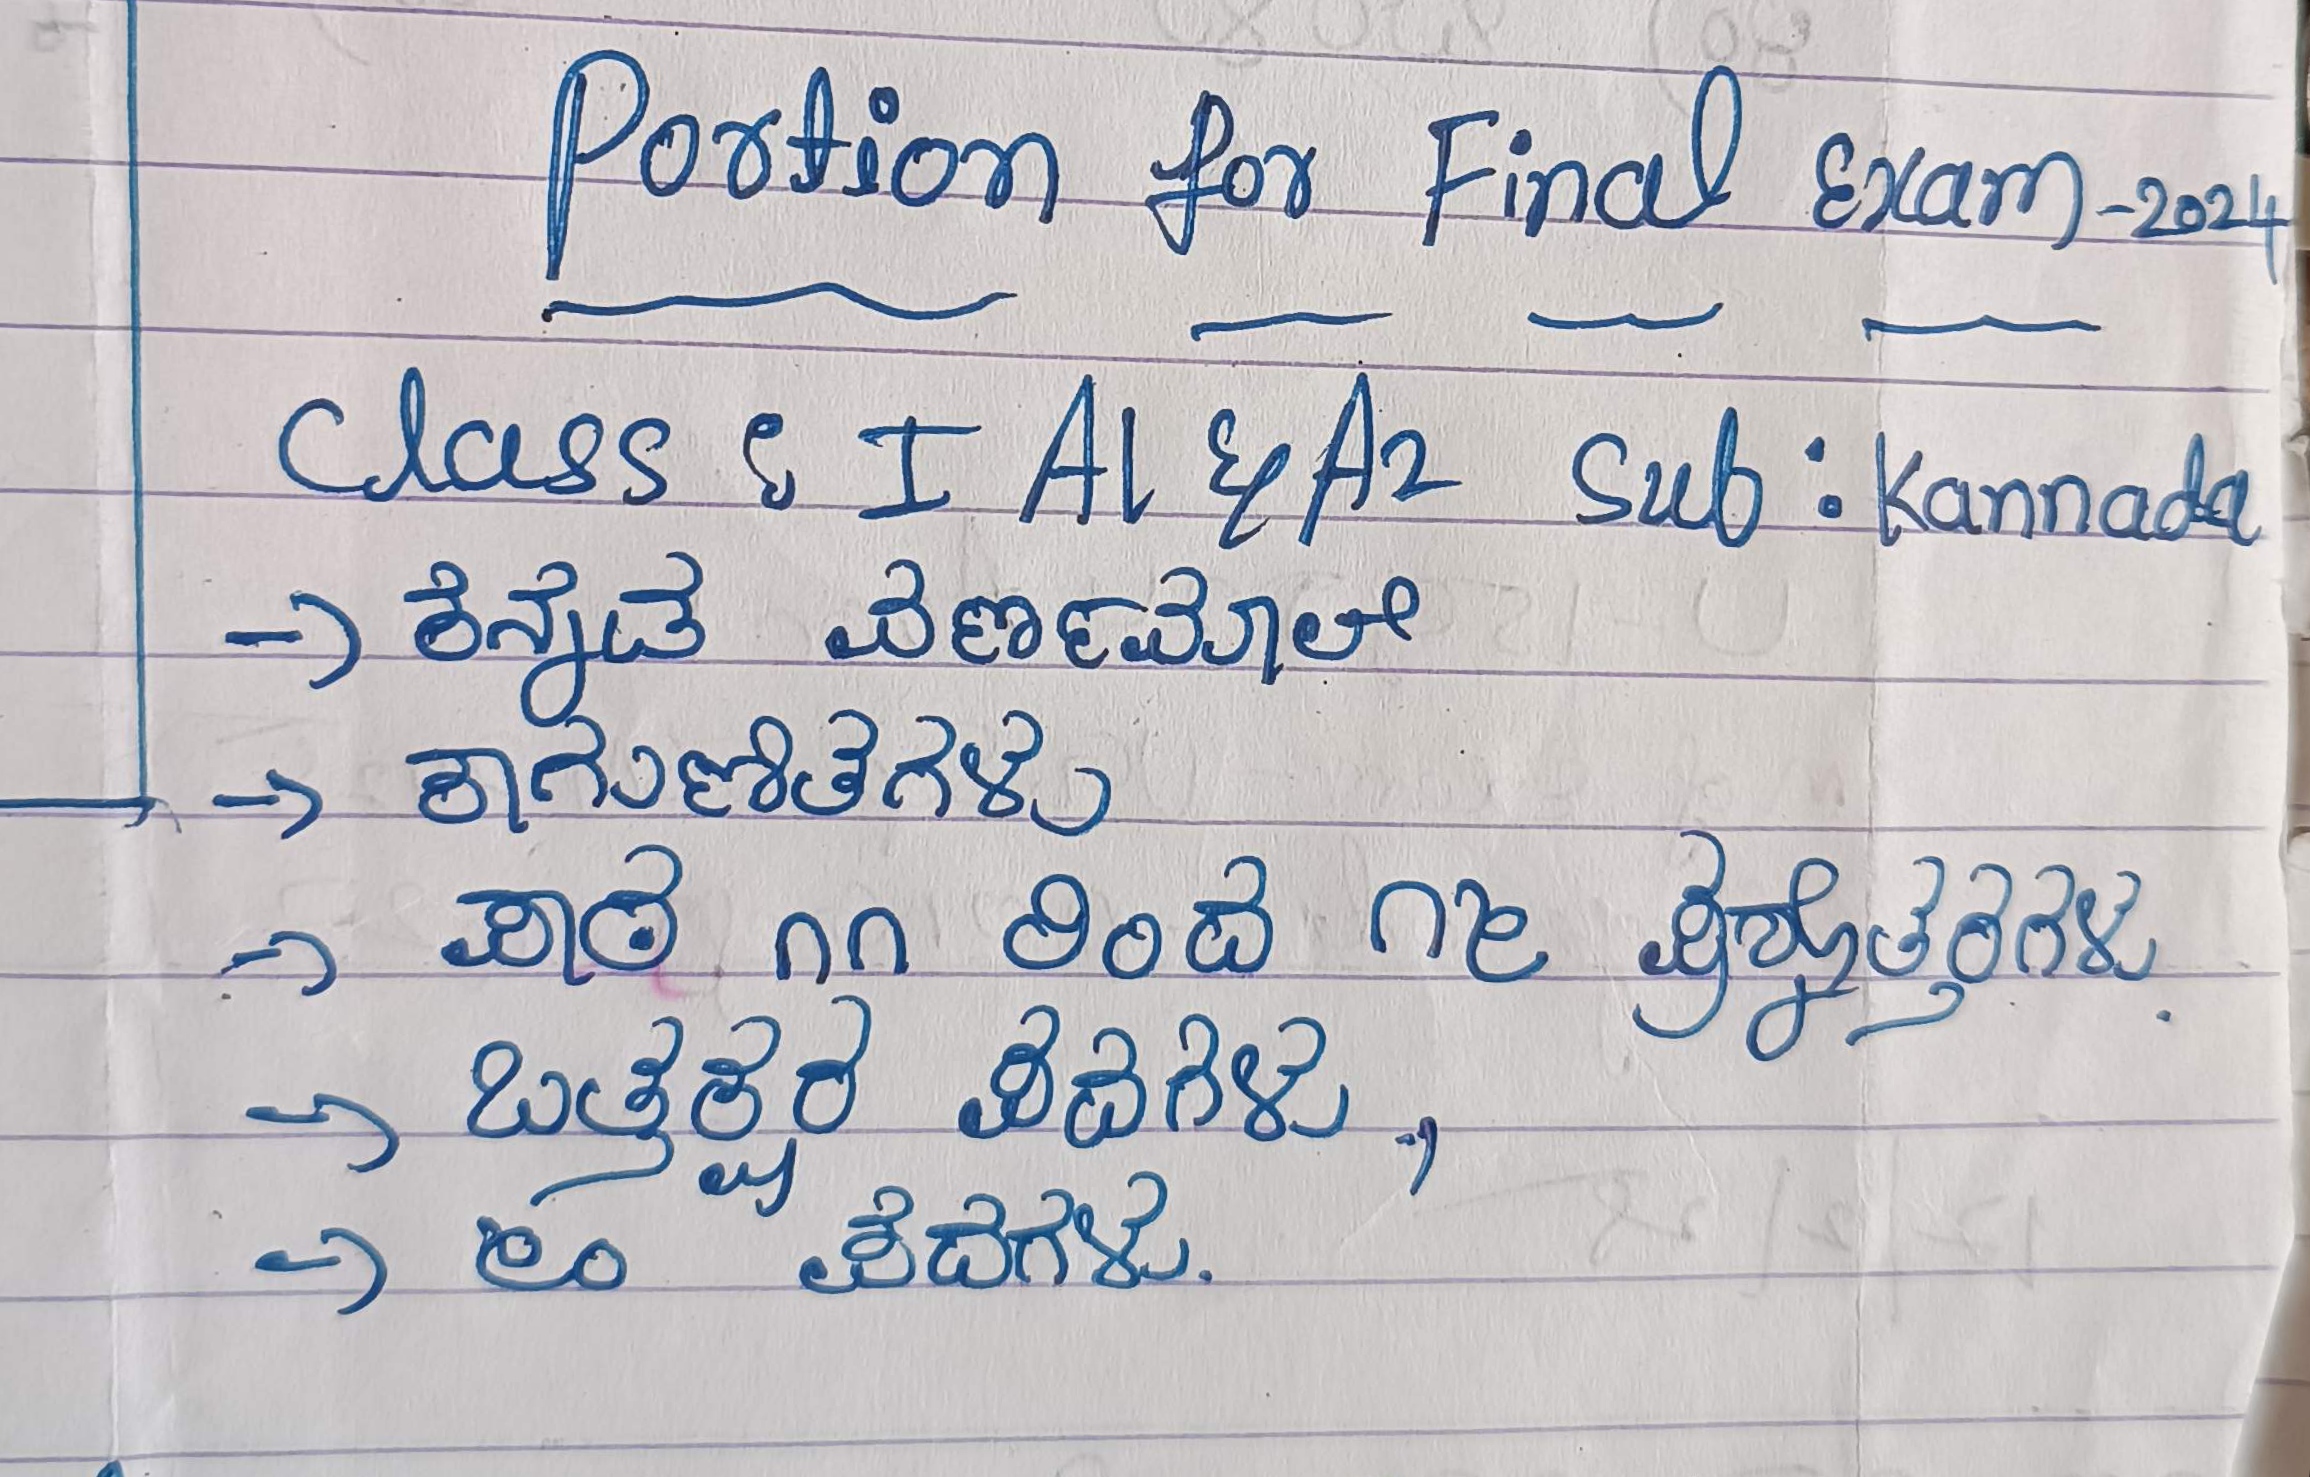 Portion for Final Exam-2024
Class : I A1 & A2 Sub : Kannada
→ ಕನ್ನಡ ವರ್ಣಮಾಲೆ
→ ಕಾಗುಣಿತಗಳು
→ ಪಾಠ ೧೧ ರಿಂದ ೧೫ ಪ್ರಶ್ನೋತ್ತರಗಳು.
→ ಒತ್ತಕ್ಷರ ಪದಗಳು,
→ ೮೦ ಪದಗಳು.